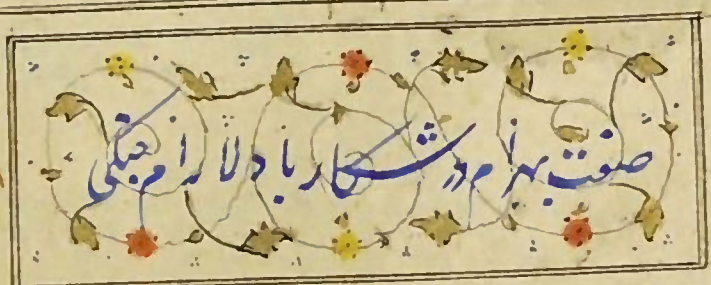 صفت بهرام در شکار با دلارام جنکی